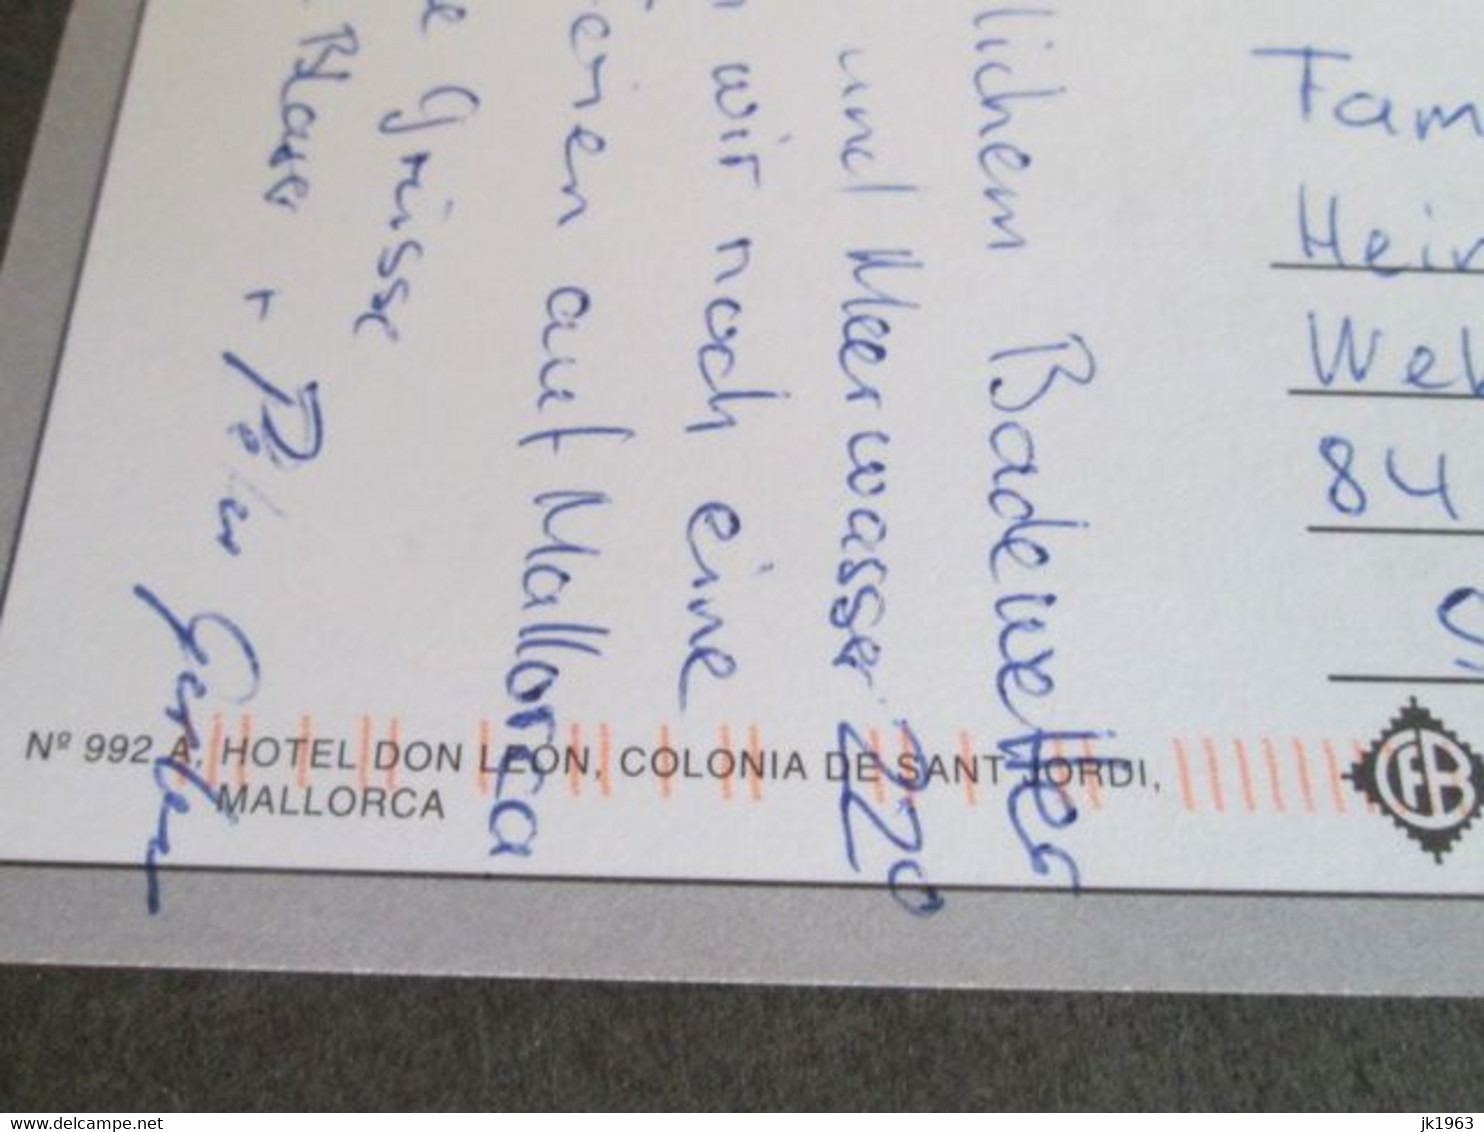 lichem Badewetter
und Meerwasser 22°
wir noch eine
auf Mallorca
e Grüsse
+
Fam
Hein
We
84
Nº 992 A, HOTEL DON LEÓN, COLONIA DE SANT JORDI,
MALLORCA
CFB
delcampe.net
jk1963